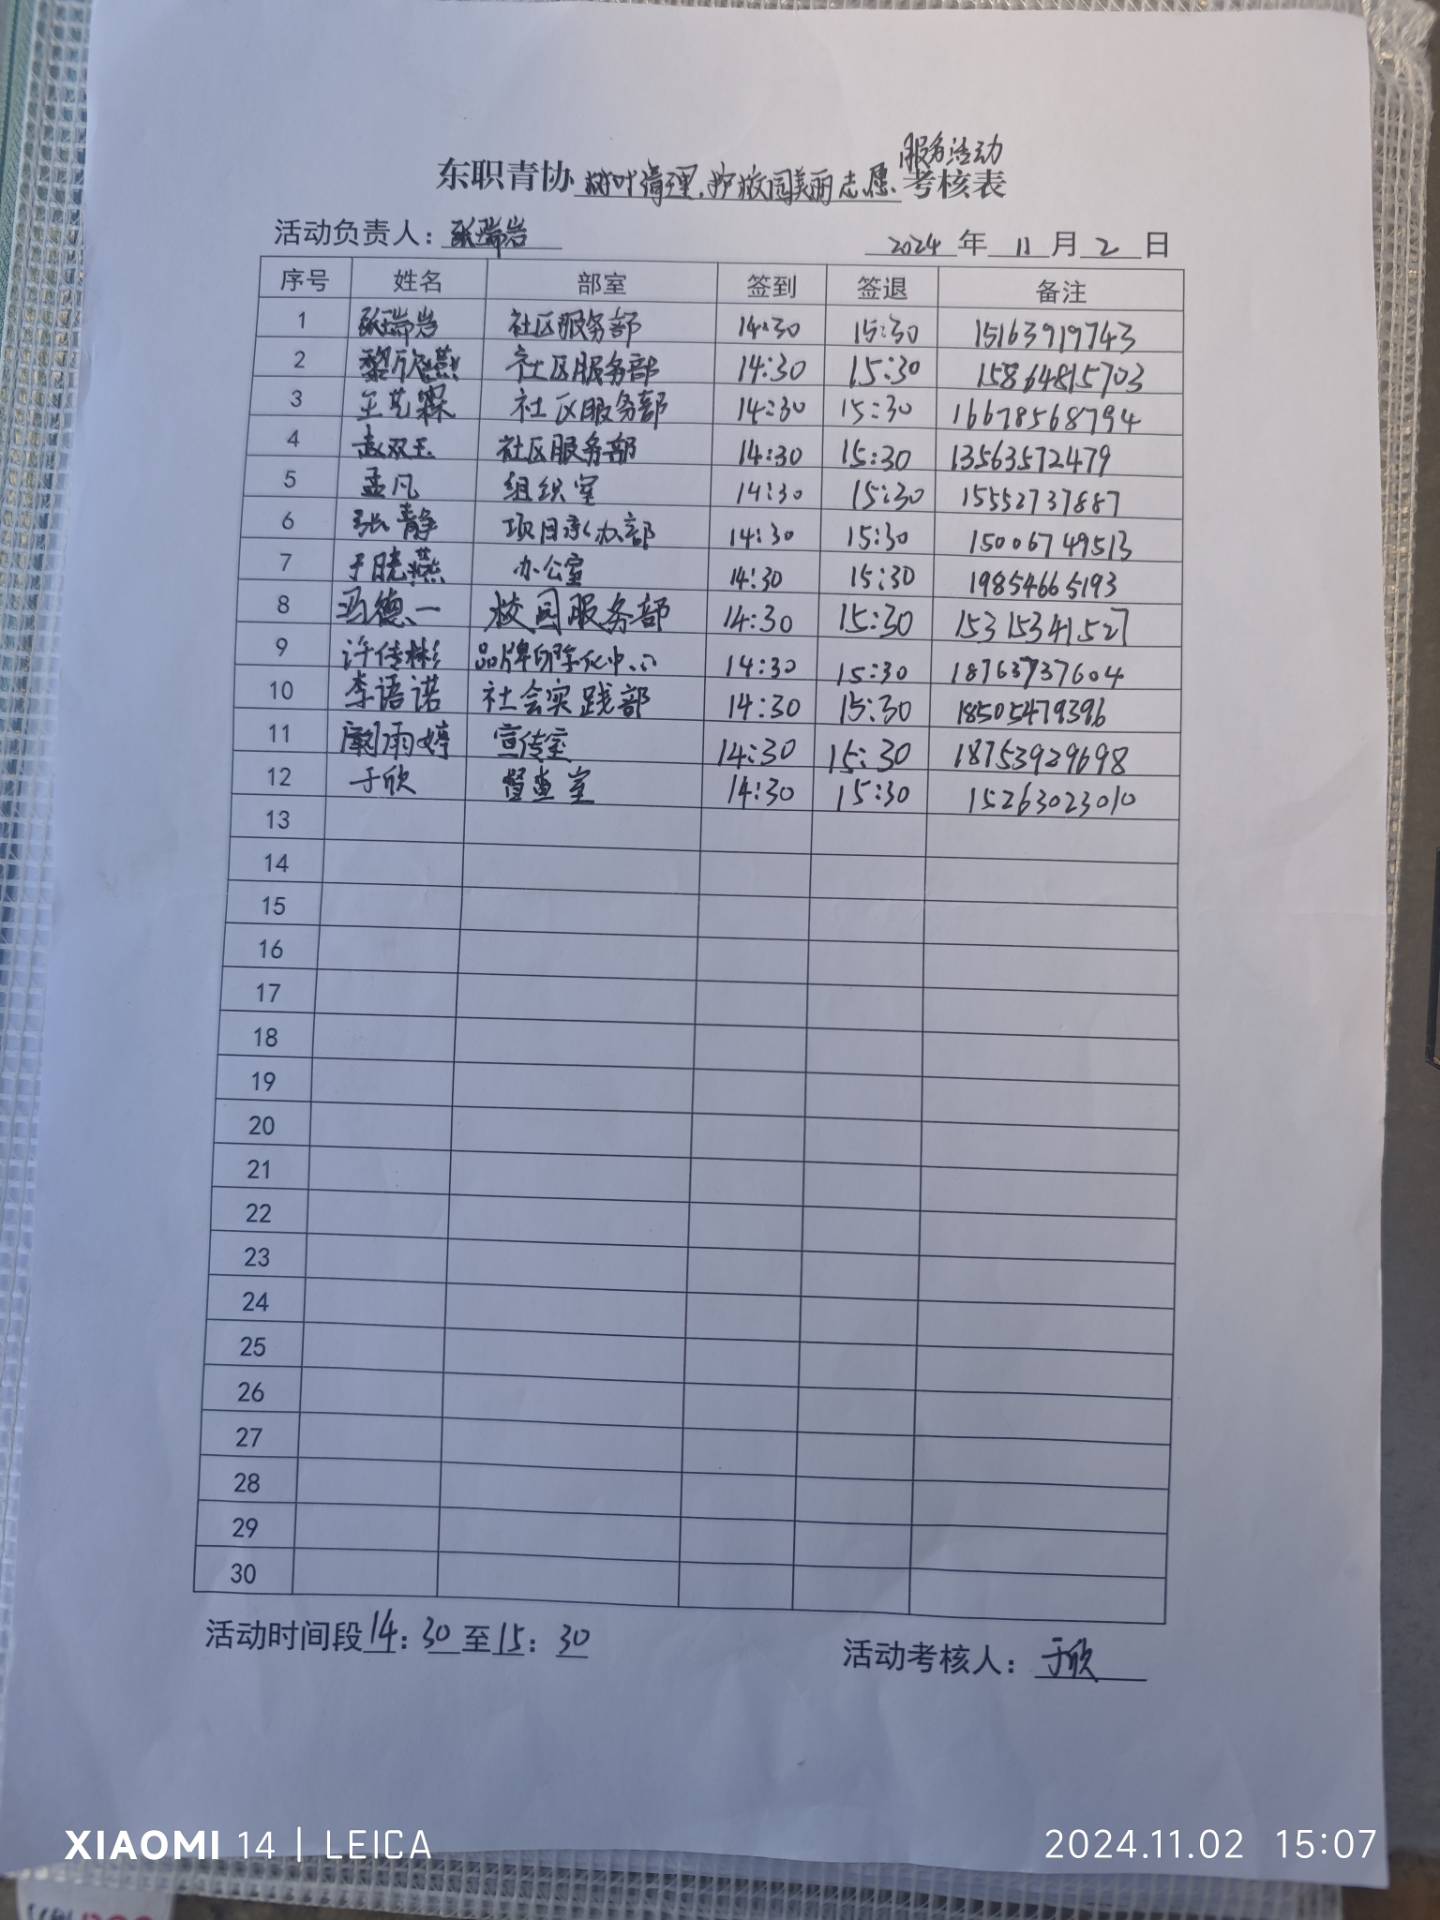 服务活动
东职青协 树叶清理,护校园美丽志愿 考核表
活动负责人: 张瑞岩 2024 年 11 月 2 日
序号 姓名 部室 签到 签退 备注
1 张瑞岩 社区服务部 14:30 15:30 15163919743
2 社区服务部 14:30 15:30 15864815703
3 王艺霖 社区服务部 14:30 15:30 16678568794
4 赵双玉 社区服务部 14:30 15:30 13563572479
5 孟凡 组织室 14:30 15:30 15552737887
6 张静 项目承办部 14:30 15:30 15006749513
7 于晓燕 办公室 14:30 15:30 19854665193
8 冯德一 校园服务部 14:30 15:30 15315341527
9 许传彬 品牌孵化中心 14:30 15:30 18763737604
10 李语诺 社会实践部 14:30 15:30 18505479396
11 雨婷 宣传室 14:30 15:30 18753929698
12 于欣 督查室 14:30 15:30 15263023010
13
14
15
16
17
18
19
20
21
22
23
24
25
26
27
28
29
30
活动时间段 14: 30 至 15: 30 活动考核人: 于欣
XIAOMI 14 | LEICA 2024.11.02 15:07